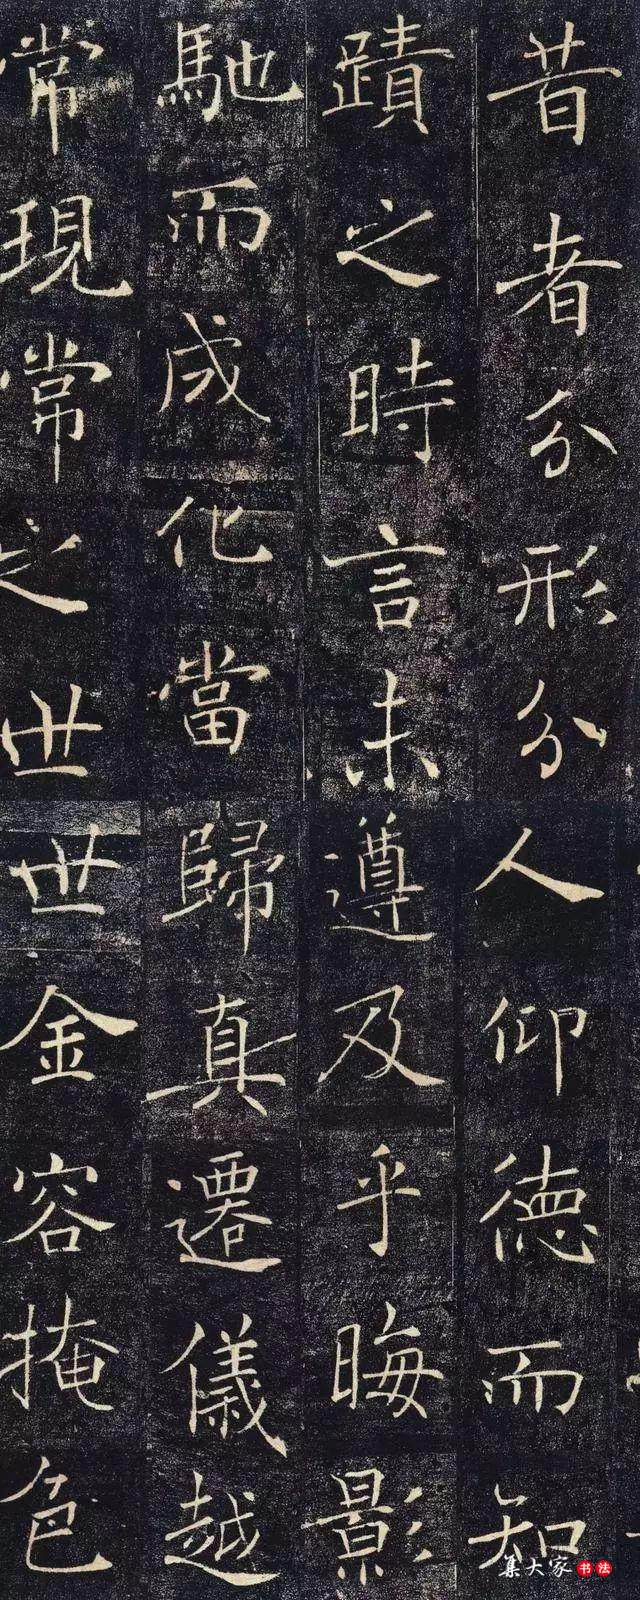 昔者分形分
蹟之時言未
馳而成化當
常現常之世
人仰德而知
遵及乎晦影
歸真遷儀越
世金容掩色
集大家书法